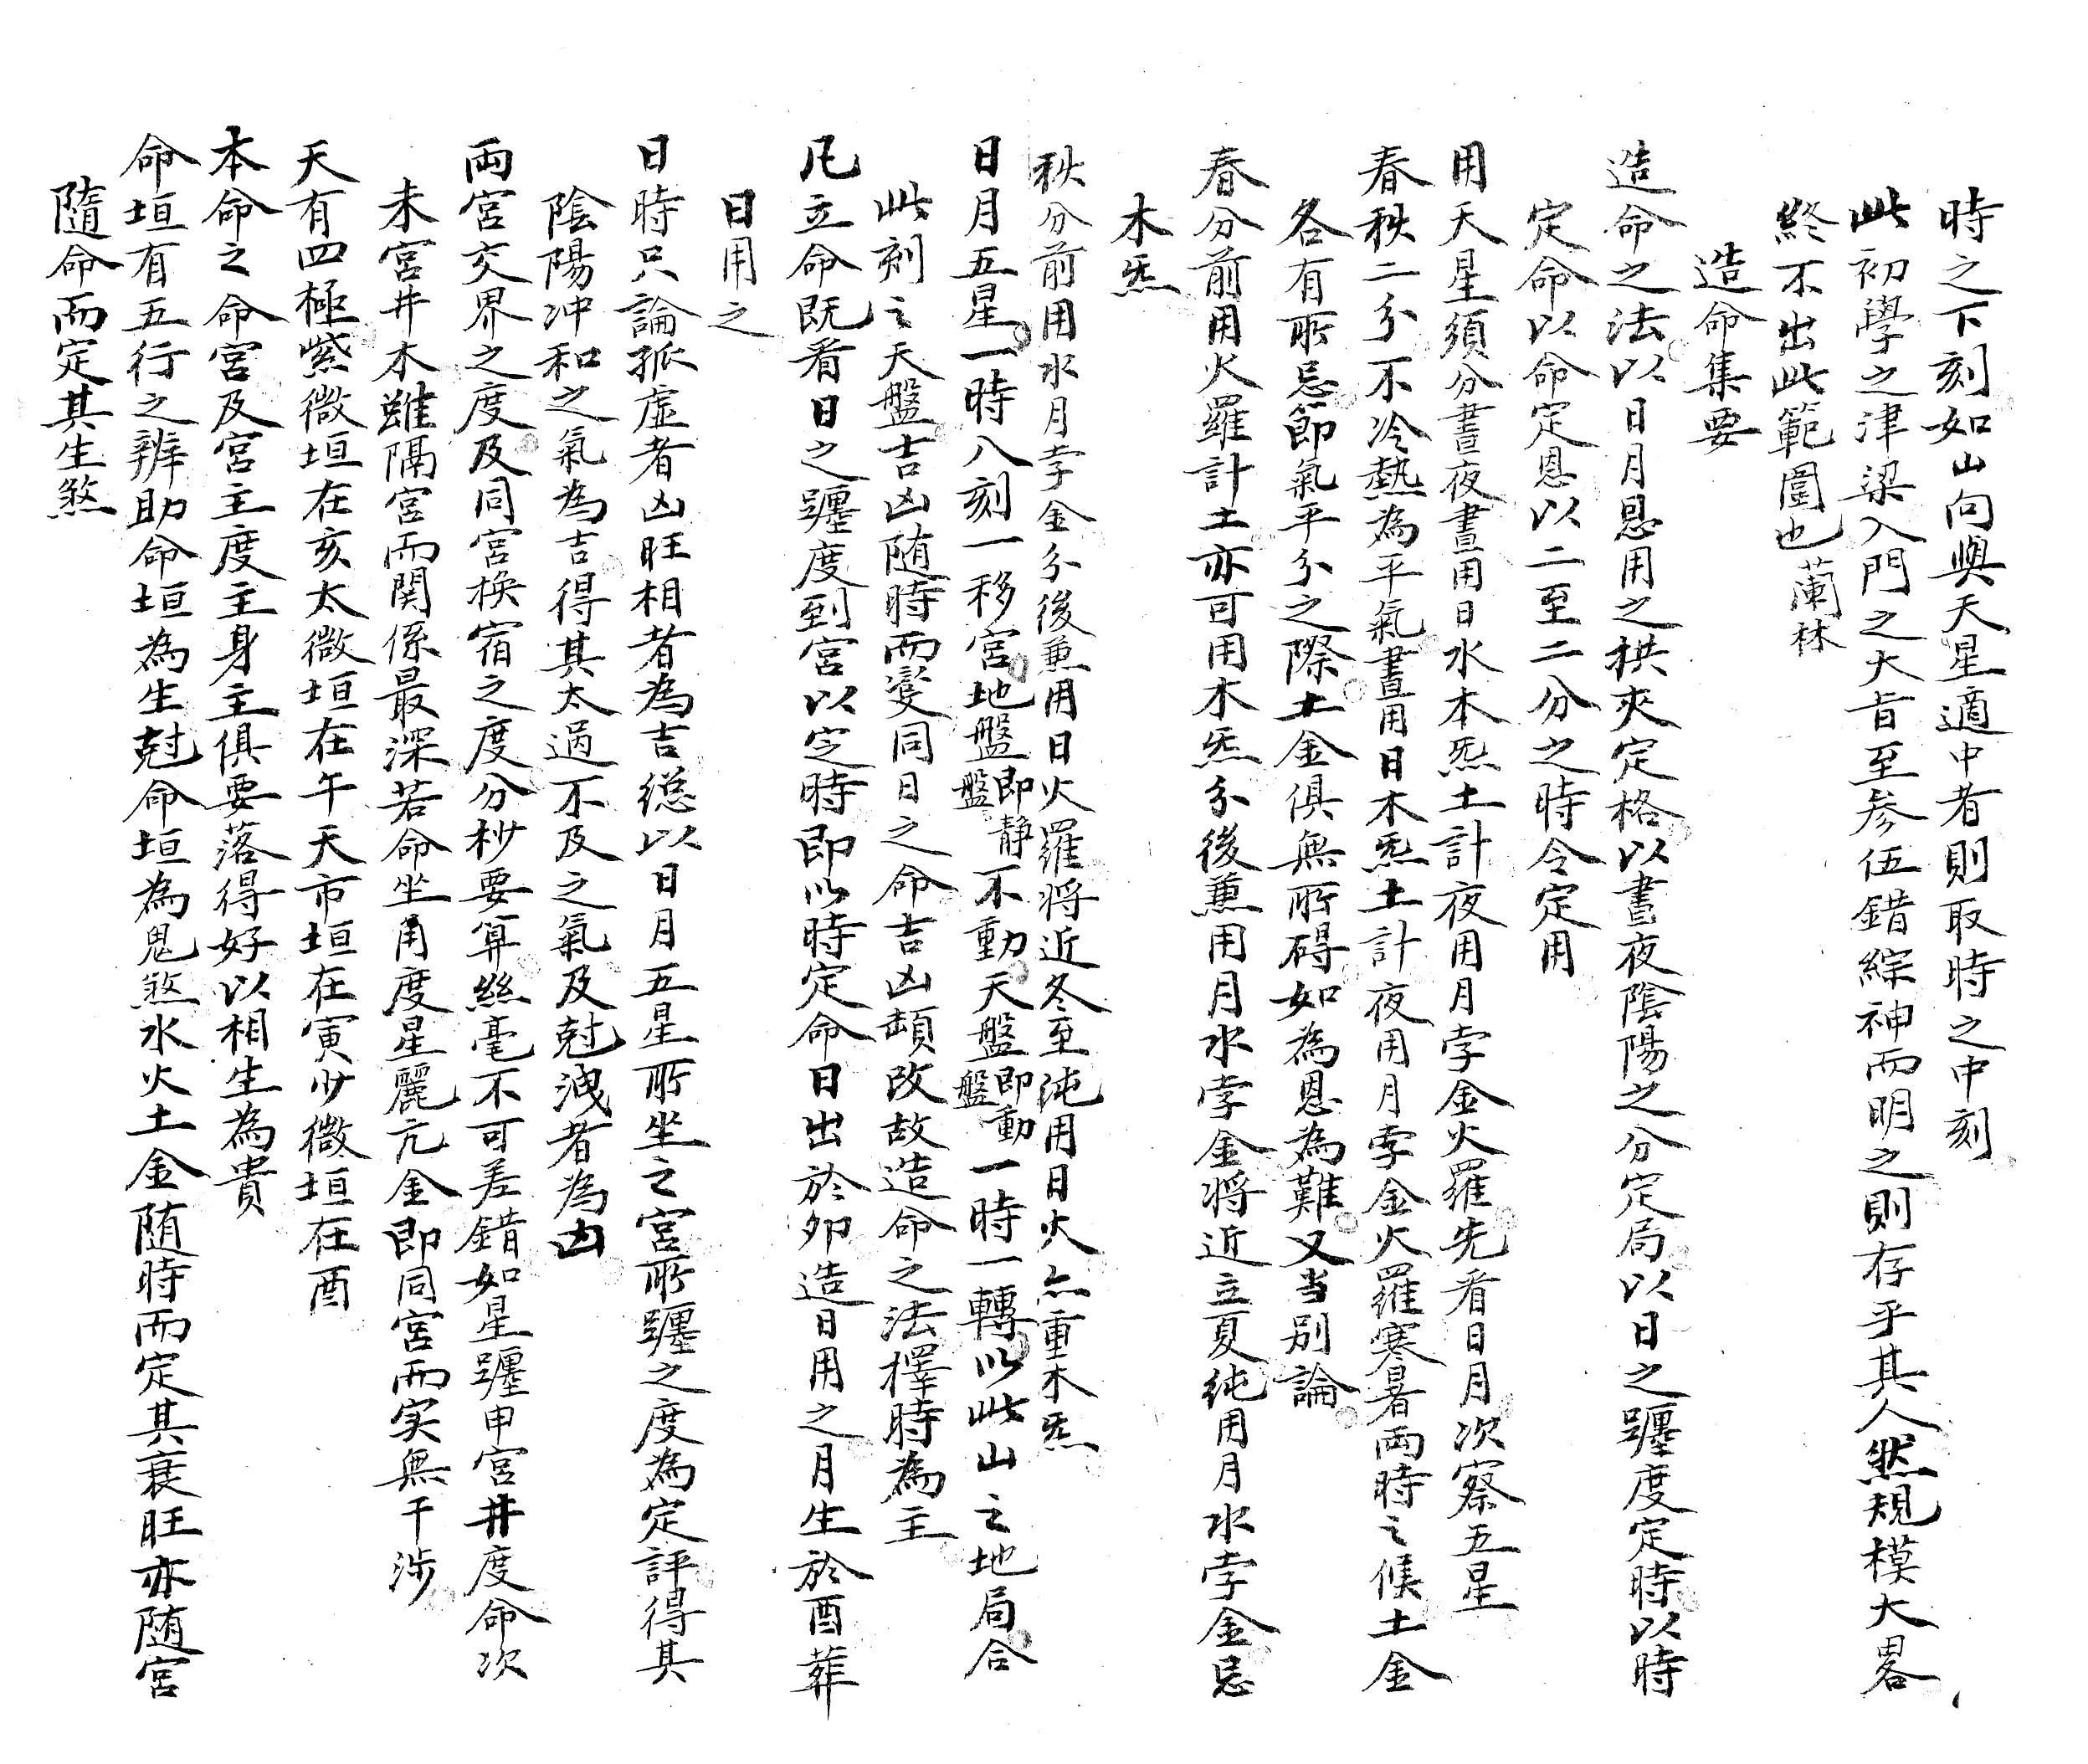 時之下刻如山向與天星適中者則取時之中刻
此初學之津梁入門之大旨至參伍錯綜神而明之則存乎其人然規模大畧
終不出此範圍也 蘭林
造命集要
造命之法以日月恩用之拱夾定格以晝夜陰陽之分定局以日之躔度定時以時
定命以命定恩以二至二分之時令定用
用天星須分晝夜晝用日水木炁土計夜用月孛金火羅先看日月次察五星
春秋二分不冷熱為平氣晝用日木炁土計夜用月孛金火羅寒暑兩時之候土金
各有所忌節氣平分之際土金俱無所碍如為恩為難又当别論
春分前用火羅計土亦可用木炁分後兼用月水孛金將近立夏純用月水孛金忌
木炁
秋分前用水月孛金分後兼用日火羅將近冬至純用日火亦重木炁
日月五星一時八刻一移宮地盤即静盤不動天盤即動盤一時一轉以此山之地局合
此刻之天盤吉凶随時而变同日之命吉凶頓改故造命之法擇時為主
凡立命既看日之躔度到宮以定時即以時定命日出於卯造日用之月生於酉葬
日用之
日時只論孤虛者凶旺相者為吉總以日月五星所坐之宮所躔之度為定評得其
陰陽冲和之氣為吉得其太過不及之氣及尅洩者為凶
兩宮交界之度及同宮換宿之度分杪要算絲毫不可差錯如星躔申宮井度命次
未宮井木雖隔宮而関係最深若命坐角度星麗亢金即同宮而实無干涉
天有四極紫微垣在亥太微垣在午天市垣在寅少微垣在酉
本命之命宮及宮主度主身主俱要落得好以相生為貴
命垣有五行之辨助命垣為生尅命垣為鬼煞水火土金随時而定其衰旺亦随宮
隨命而定其生煞